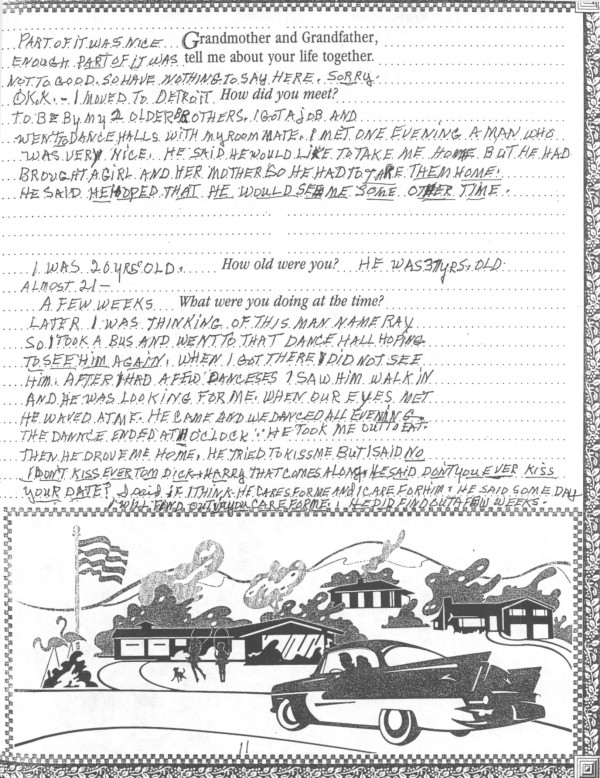 PART OF IT WAS NICE Grandmother and Grandfather,
ENOUGH PART OF IT WAS tell me about your life together.
NOT TO GOOD. SO HAVE NOTHING TO SAY HERE. SORRY.
OK.K. - I MOVED TO DETROIT How did you meet?
TO BE By my 2 OLDER BROTHERS. I GOT A JOB AND
WENT TO DANCE HALLS WITH MY ROOM MATE. I MET ONE EVENING A MAN WHO
WAS VERY NICE. HE SAID HE WOULD LIKE TO TAKE ME HOME BUT HE HAD
BROUGHT A GIRL AND HER MOTHER SO HE HAD TO TAKE THEM HOME.
HE SAID HE HOPED THAT HE WOULD SEE ME SOME OTHER TIME.
I WAS 20 YRS OLD. How old were you? HE WAS 37 YRS. OLD.
ALMOST 21-
A FEW WEEKS What were you doing at the time?
LATER I WAS THINKING OF THIS MAN NAME RAY
SO I TOOK A BUS AND WENT TO THAT DANCE HALL HOPING
TO SEE HIM AGAIN. WHEN I GOT THERE I DID NOT SEE
HIM. AFTER I HAD A FEW DANCESES I SAW HIM WALK IN
AND HE WAS LOOKING FOR ME. WHEN OUR EYES MET
HE WAVED AT ME. HE CAME AND WE DANCED ALL EVENING.
THE DANCE ENDED AT O'CLOCK. HE TOOK ME OUT TO EAT.
THEN HE DROVE ME HOME. HE TRIED TO KISS ME BUT I SAID NO
I DON'T KISS EVER TOM DICK + HARRY THAT COMES ALONG. HE SAID DON'T YOU EVER KISS
YOUR DATE? I said IF I THINK HE CARES FOR ME AND I CARE FOR HIM. HE SAID SOME DAY
I WILL FIND OUT IF YOU CARE FOR ME. HE DID FIND OUT A FEW WEEKS.
11